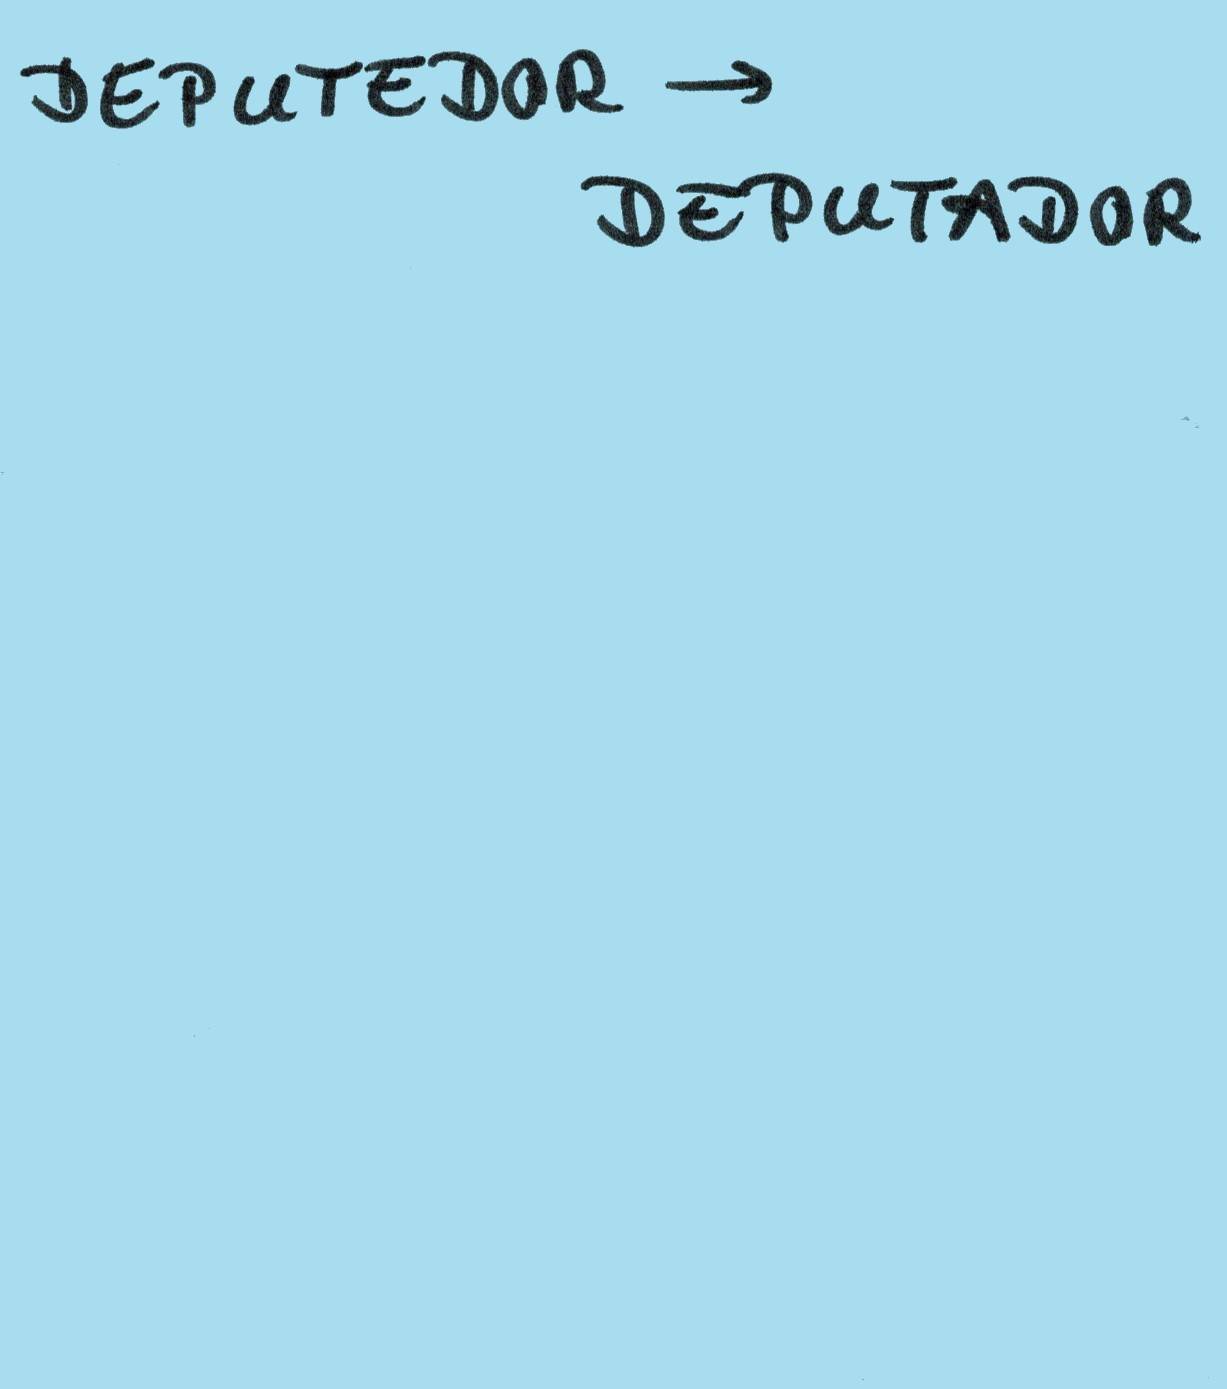 DEPUTEDOR →
DEPUTADOR